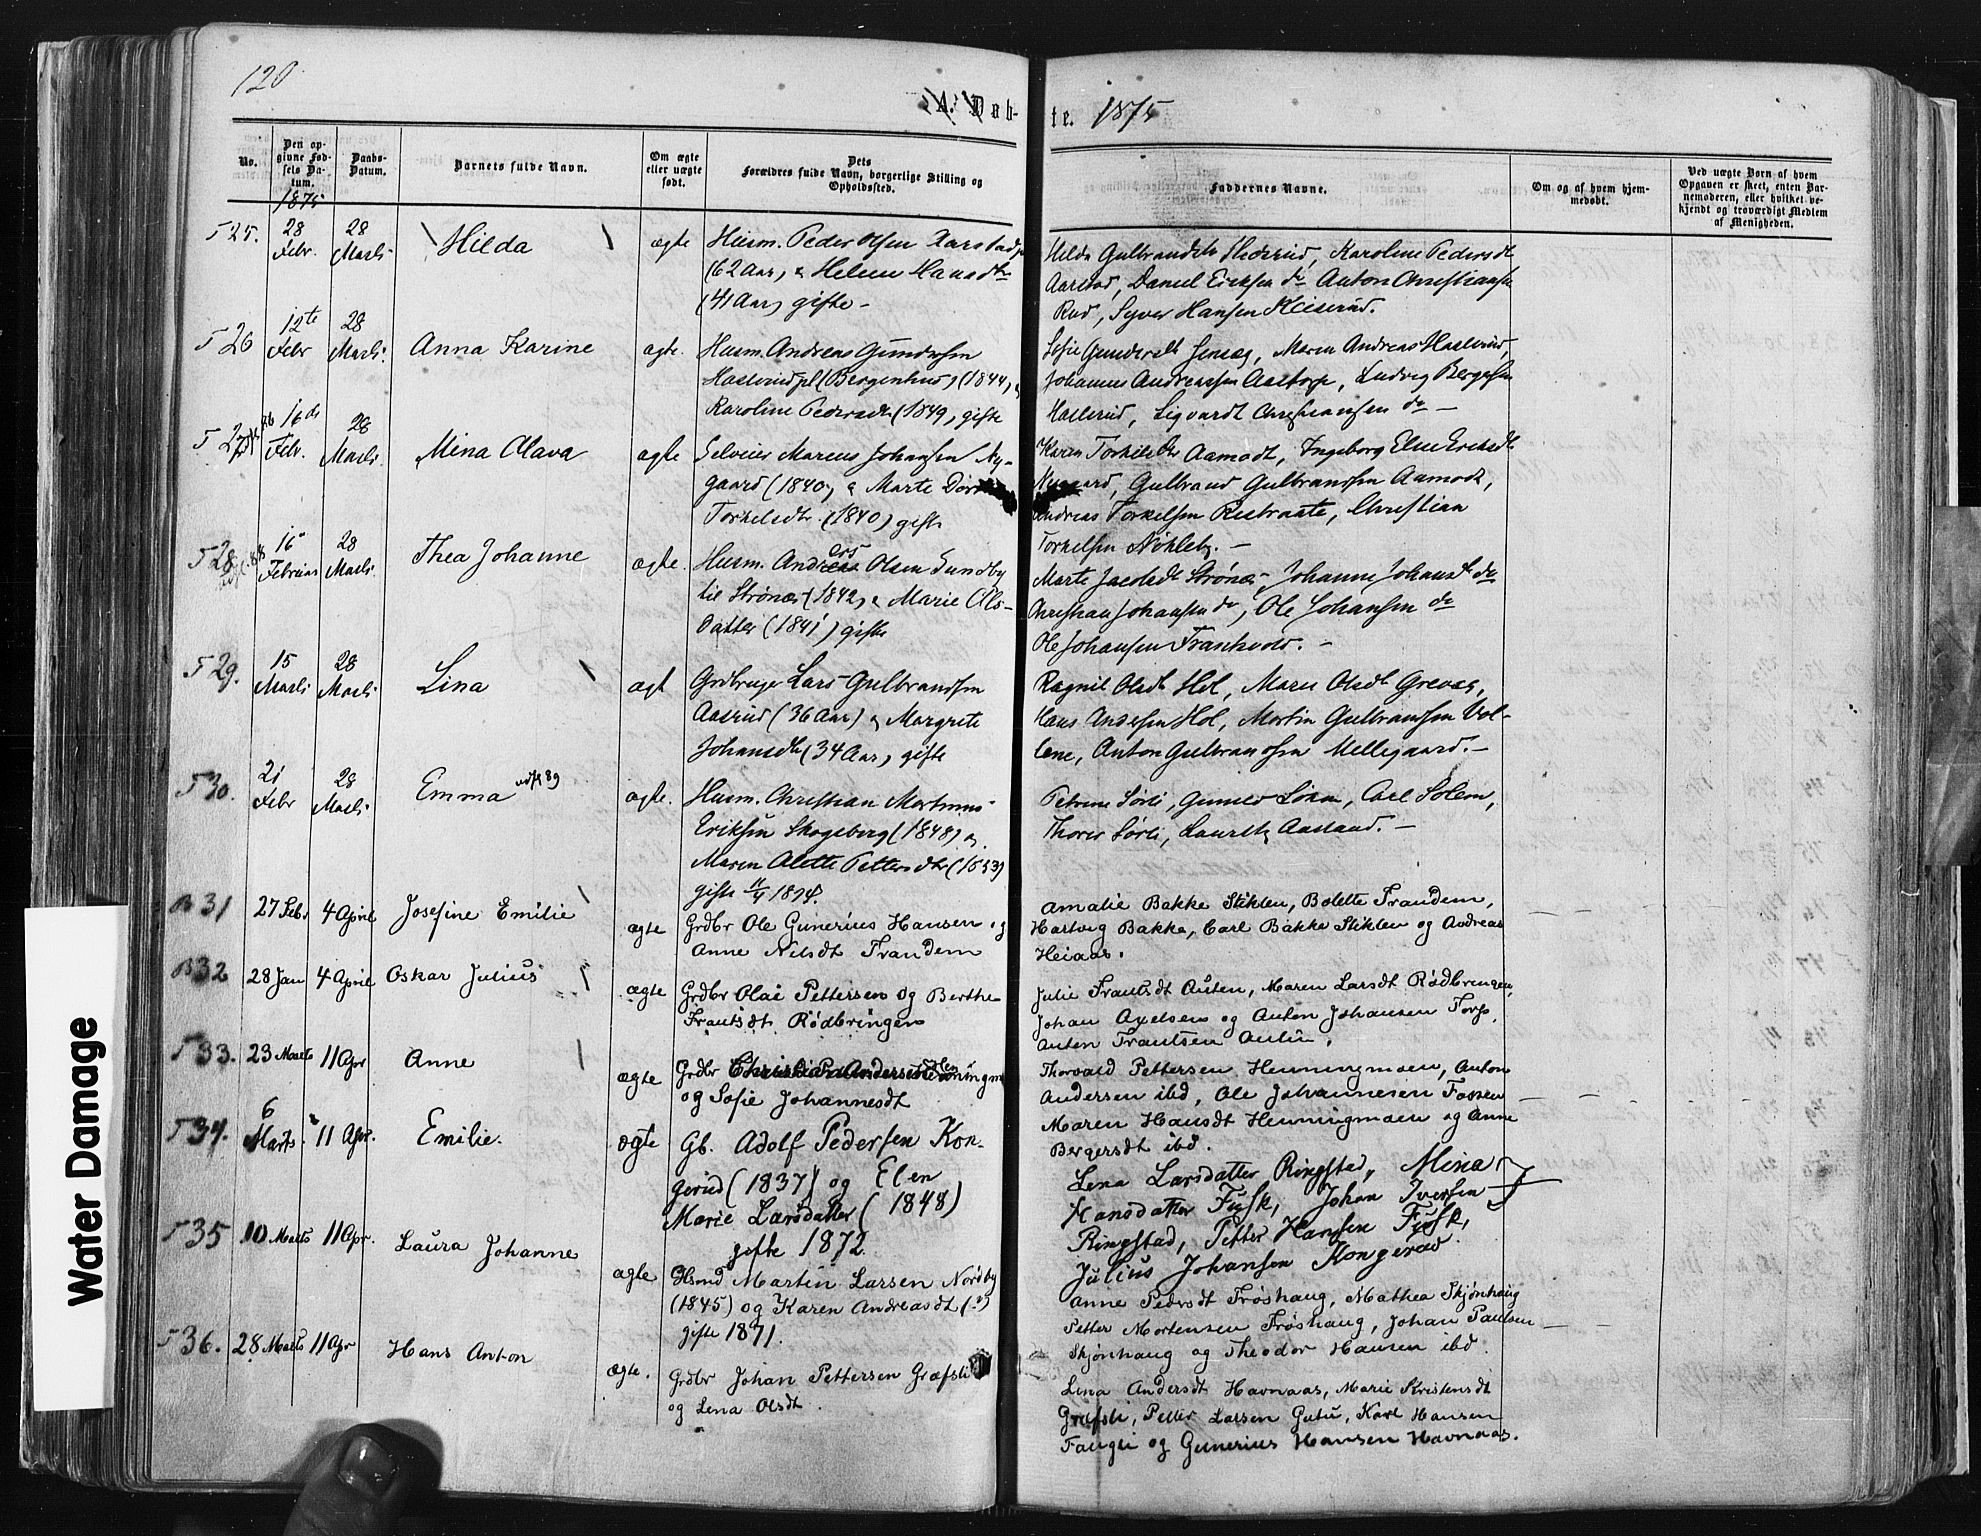 120
A. Døb-
te. 1875
No.
Den op-
givne Fød-
sels Da-
tum.
1875
Daabs-
Datum.
Barnets fulde Navn.
Om ægte
eller uægte
født.
Dets
Forældres fulde Navn, borgerlige Stilling og
Opholdssted.
Faddernes Navne.
Om og af hvem hjem-
medøbt.
Ved uægte Børn af hvem
Opgaven er skeet, enten Bar-
nemoderen, eller hvilket be-
kjendt og troværdigt Medlem
af Menigheden.
T 25.
28
Febr.
28
Marts
Hilda
ægte
Husm. Peder Olsen
(62 Aar) & Helene Hansdtr
(41 Aar) gifte -
Hilda Gulbrandsdtr Karoline Pedersdt
Aarstad, Daniel Eriksen do Anton Christiansen
Rud, Syver Hansen
T 26
12te
Febr
28
Marts
Anna Karine
ægte.
Husm. Andreas Gundersen
Haslerudpl (Bergenhus) (1844) &
Karoline Pedersdtr (1849) gifte
Sofie Gundersdt Maren Andreas Haslerud,
Johannes Andreassen Aastorp, Ludvig Bergesen
Haslerud, Sigvardt Christiansen do -
T 27
16de
Febr.
28
Marts
Mina Olava
ægte
Selveier Marcus Johansen Ny-
gaard (1840) & Marte
Torkelsdtr (1840) gifte
Karen Torkelsdtr Aamodt, Ingeborg Eline Eriksdt
Nygaard, Gulbrand Gulbrandsen Aamodt,
Andreas Torkelsen Christian
Torkelsen Nøkleby. -
T 28
16
Februar
28
Marts
Thea Johanne
ægte.
Husm. Anders Olsen Sundby
til Strønæs (1842) & Marie Ols-
datter (1841) gifte
Marte Jacobsdt Strønæs, Johanne Johansdt do
Christian Johansen do, Ole Johansen do
Ole Johansen -
T 29.
15
Marts
28
Marts
Lina
ægt
Grdbruger Lars Gulbrandsen
Aasrud (36 Aar) & Margrete
Johansdtr (34 Aar) gifte
Ragnil Olsdt Hol, Maren Olsdt
Hans Andersen Hol, Martin Gulbrandsen Vol-
lene, Anton Gulbrandsen Mellegaard. -
T 30.
21
Febr
28
Marts
Emma
ægte.
Husm. Christian Martinus
Eriksen Skogsberg (1848) og
Maren Olette Pettersdtr (1853)
gifte 1874.
Petrine Sørli, Carl Solem,
Thorer Sørli, Laurits -
B 31
27 Feb
4 April
Josefine Emilie
ægte
Grdbr Ole Gunerius Hansen og
Anne Nilsdt Trandem
Amalie Bakke Stiklen, Bolette Trandem,
Hartvig Bakke, Carl Bakke Stiklen og Andreas
Heiaas.
B 32
28 Jan
4 April
Oskar Julius
ægte
Grdbr Olai Pettersen og Berthe
Frantsdt Rødbringen
Julie Frantsdt Austen, Maren Larsdt Rødbringen,
Johan Axelsen og Anton Johansen Torp,
Anten Frantsen
T 33.
23 Marts
11 Apr
Anne
ægte
Grdbr
og Sofie Johannesdt
Thorvald Pettersen Henningmoen, Anton
Andersen ibd, Ole Johannesen Fossen
Maren Hansdt Henningmoen og Anne
Bergersdt ibd.
T 34.
6
Marts
11 Apr.
Emilie.
ægte
Gb. Adolf Pedersen Kon-
gerud (1837) og Elen
Marie Larsdatter (1848)
gifte 1872.
Lena Larsdatter Ringstad, Mina
Hansdatter Fusk, Johan Iversen
Ringstad, Petter Hansen Fusk,
Julius Johansen Kongerud.
T 35
10 Marts
11 Apr.
Laura Johanne
ægte
Hsmd Martin Larsen Nordby
(1845) og Karen Andreasdt (?)
gifte 1871.
Anne Pedersdt Frøshaug, Mathea Skjønhaug
Petter Mortensen Frøshaug, Johan Paulsen
Skjønhaug og Theodor Hansen ibd.
T 36.
28 Marts
11 Apr
Hans Anton
ægte.
Grdbr Johan Pettersen Græfsli
og Lena Olsdt.
Lina Andersdt Havnaas, Marie Kristensdt
Græfsli, Petter Larsen Karl Hansen
og Gunerius Hansen Havnaas.
Water Damage